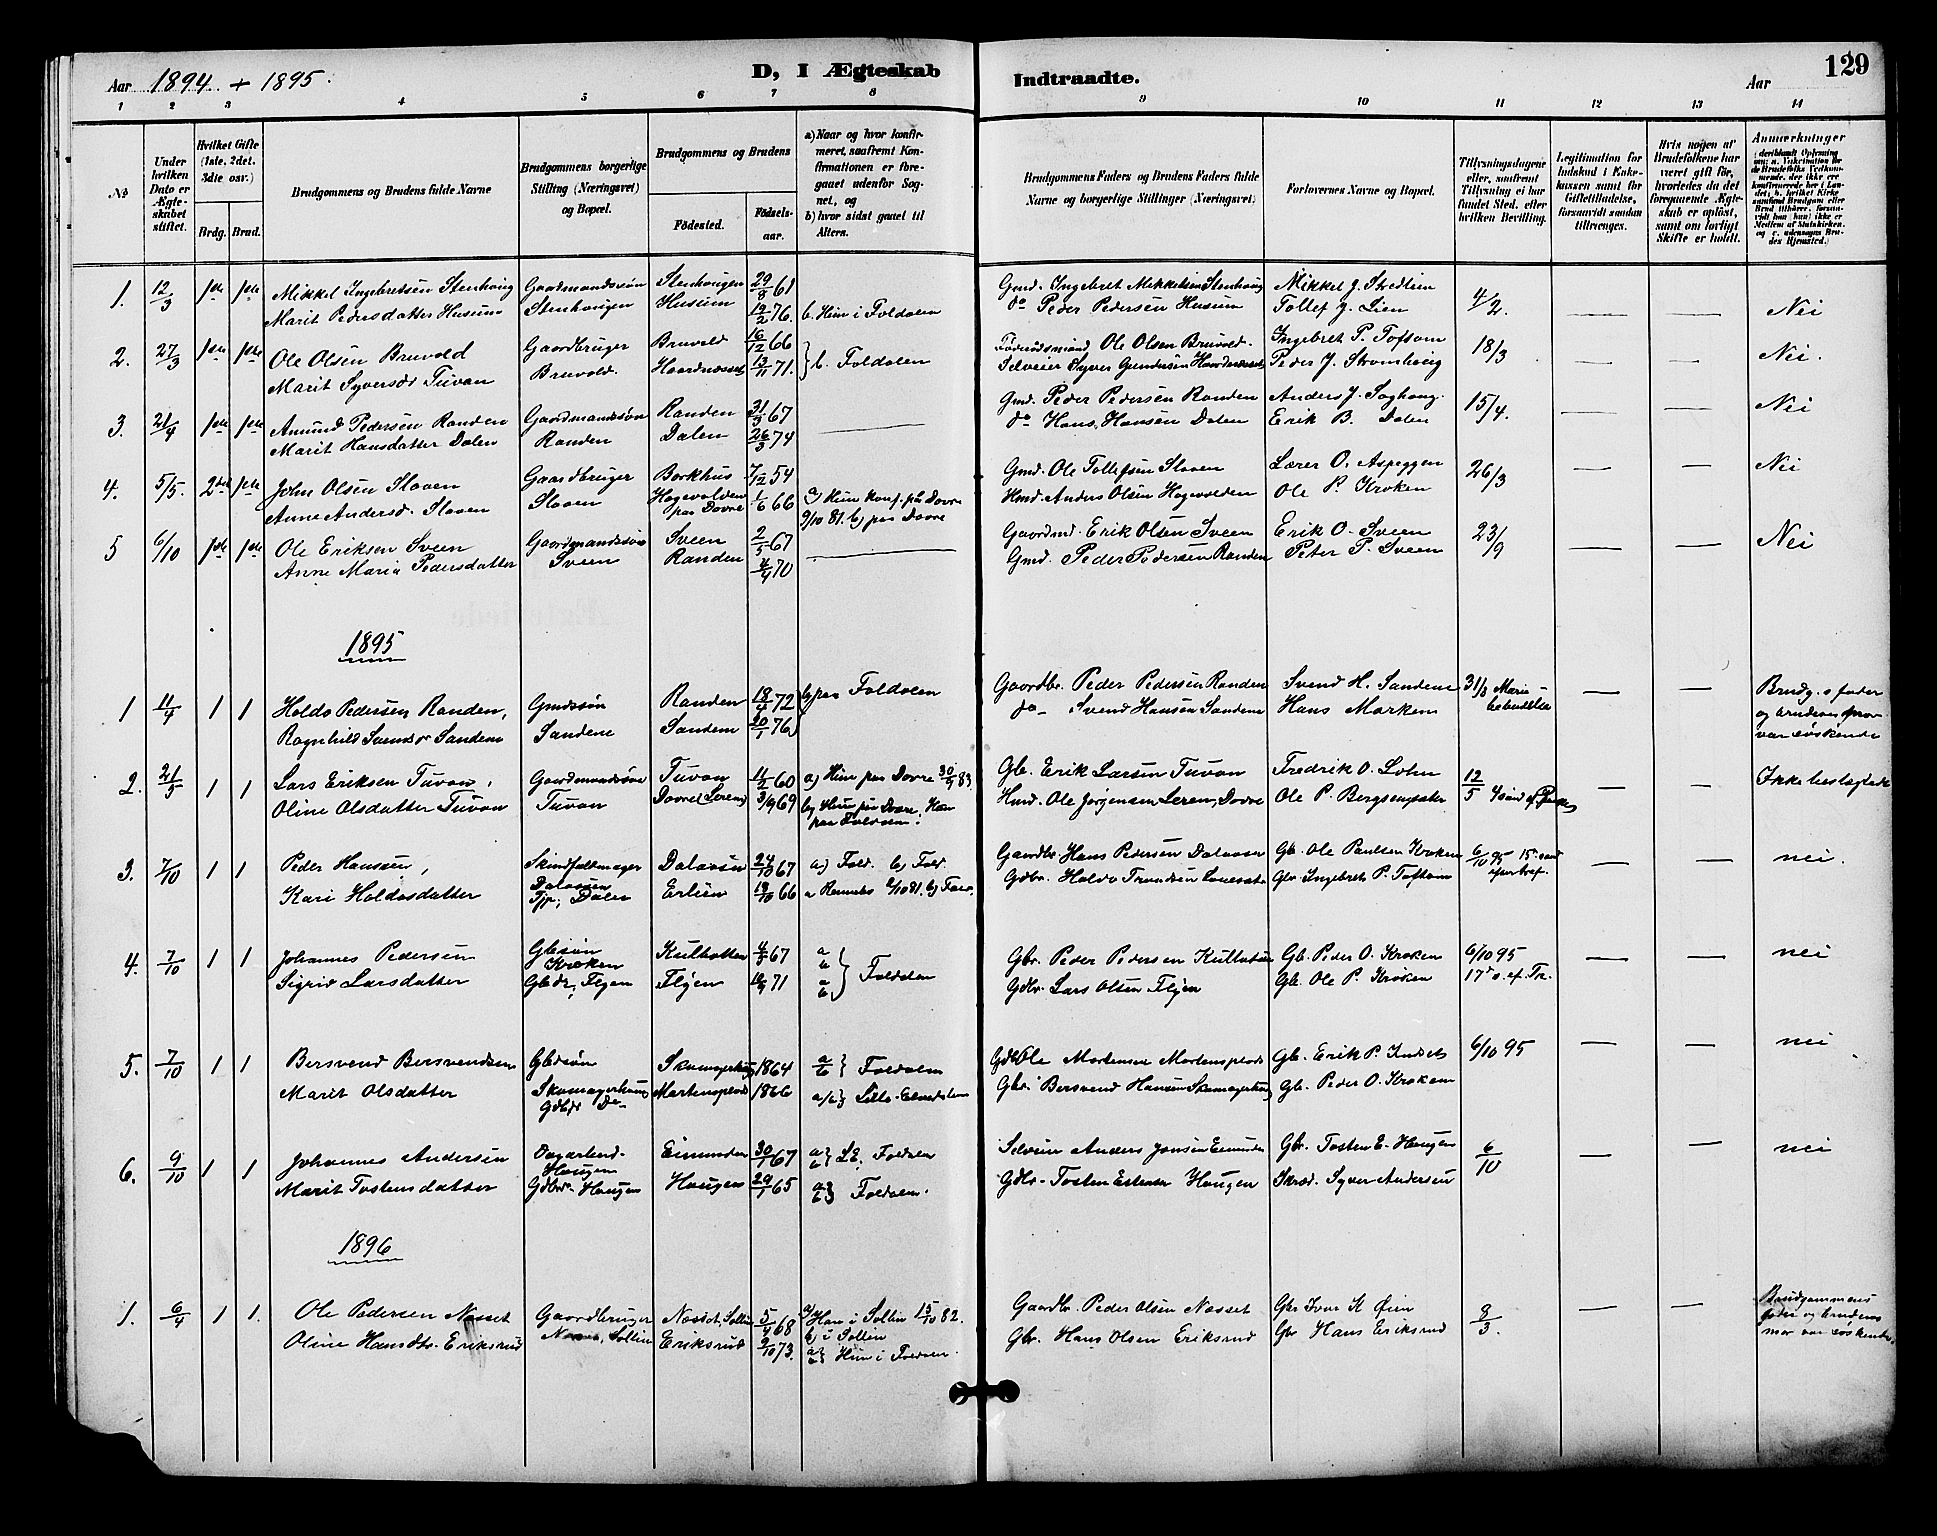 Aar 1894 + 1895.
D, I Ægteskab Indtraadte.
Aar 129
1 2 3 4 5 6 7 8 9 10 11 12 13 14
No
Under hvilken Dato er Ægteskabet stiftet.
Hvilket Gifte (1ste, 2det, 3die osv.)
Brdg. Brud.
Brudgommens og Brudens fulde Navne
Brudgommens borgerlige Stilling (Næringsvei) og Bopæl.
Brudgommens og Brudens
Fødested. Fødselsaar.
a) Naar og hvor konfirmeret, saafremt Konfirmationen er foregaaet udenfor Sognet, og
b) hvor sidst gaaet til Alters.
Brudgommens Faders og Brudens Faders fulde Navne og borgerlige Stillinger (Næringsvei)
Forlovernes Navne og Bopæl.
Tillysningsdagene eller, saafremt Tillysning ei har fundet Sted, efter hvilken Bevilling.
Legitimation for Indskud i Enkekassen samt for Giftetilladelse, forsaavidt saadan tiltrænges.
Hvis nogen af Brudefolkene har været gift før, hvorledes da det foregaaende Ægteskab er opløst, samt om lovligt Skifte er holdt.
Anmærkninger
1. 12/3 1ste 1ste Mikkel Ingebretsen Stenhoug Gaardmandssøn Stenhougen 29/8 61
Marit Pedersdatter Husum Stenhougen Husum 76. b. Him i Foldalen
Gmd. Ingebret Mikkelsen Stenhoug Mikkel J. Stredlien 4/2. — — Nei
do Peder Pedersen Husum Tollef J. Lien
2. 27/3 1ste 1ste Ole Olsen Bruvold Gaardbruger Bruvold 16/12 66
Marit Syversdr Tuvan Bruvold. Haardnæsset 13/11 71. } b. Foldalen
Føderådsmand Ole Olsen Bruvold Ingebret P. Toftom 18/3 — — Nei.
Selveier Syver Gundersen Haardnæsset Peder J. Stromhoug
3. 21/4 1ste 1ste Amund Pedersen Randen Gaardmandssøn Randen 31/3 67
Marit Hansdatter Dalen Randen Dalen 26/3 74 —
Gmd. Peder Pedersen Randen Anders J. Soghoug. 15/4. — — Nei
do Hans Hansen Dalen Erik B. Dalen
4. 5/5. 2det 1ste John Olsen Sloven Gaardbruger Borkhus 7/12 54
Anne Andersdr. Sloven Sloven Hagevolden paa Dovre 1/6 66 a) Him konf. på Dovre 9/10 81. b) paa Dovre
Gmd. Ole Tollefsen Sloven Lærer O. Aspeggen 26/3 — — Nei
Hmd. Anders Olsen Hagevolden Ole P. Kroken
5 6/10 1ste 1ste Ole Eriksen Sveen Gaardmandssøn Sveen 2/5 67
Anne Maria Pedersdatter Sveen Randen 4/4 70 —
Gaardmd. Erik Olsen Sveen Erik O. Sveen 23/9 — — Nei
Gmd. Peder Pedersen Randen Peter P. Sveen
1895
1 11/4 1 1 Holdo Pedersen Randen, Gmdssøn Randen 18/4 72 b) paa Foldalen
Ragnhild Svendsdr Sandene Sandene Sandene 20/1 76
Gaardbr. Peder Pedersen Randen Svend H. Sandene 31/3 Marie- — — Brudg.s fader
do- Svend Hansen Sandene Hans Markem bebudelse og brudens mor
var søskende
2. 21/5 1 1 Lars Eriksen Tuvan, Gaardmandssøn Tuvan 11/2 60 a) Him paa Dovre 30/9 83.
Oline Olsdatter Tuvan Tuvan Dovre 69 b) Him paa Dovre. Han paa Foldalen.
Gb. Erik Larsen Tuvan Fredrik O. Lohn 12/5 — — Ikke beslægtede
Hmd. Ole Jørgensen Leren, Dovre Ole P. Bergsengsæter
3. 7/10 1 1 Peder Hansen, Skindfeldmager Dalaasen 24/10 67 a) Fold. b) Fold.
Kari Holdosdatter Dalaasen Tjp. Dalen Erlien 18/10 66 a Rennebo 2/10 81. b) Fold.
Gaardbr Hans Pedersen Dalaasen Gb. Ole Paulsen Kroken 6/10 95 — — nei.
Gdbr. Holdo Trondsen Gbr Ingebret P. Toftom
4. 7/10 1 1 Johannes Pedersen Gbrsøn Kroken Kulhatten 4/3 67 a b
Sigrid Larsdatter Gbdr, Flyen Flyen 71 a b } Foldalen
Gbr. Peder Pedersen Kulhatten Gb. Peder O. Kroken 6/10 95 — — nei
Gdbr. Lars Olsen Flyen Gb. Ole P. Kroken 17de s. ef. Tr.
5. 7/10 1 1 Bersvend Bersvendsen Gbrsøn Skomagerhaug 1864 a/b } Foldalen
Marit Olsdatter Skomagerhaug Gdbdr Do- Mortensplads 1866 a/b } Lille-Elvedalen
Gdbr Ole Mortensen Mortensplads Gb. Erik P. Kndsets 6/10 95 — — nei
Gbr. Bersvend Hansen Skomagerhaug Gb. Peder O. Kroken
6. 9/10 1 1 Johannes Andersen Dagarbeid. Haugen Eimunden 30/1 67 a b } LE. Foldalen
Marit Tostensdatter Gdbr. Haugen Haugen 29/1 65 a b } Foldalen.
Selveier Anders Jonsen Eimunden Gbr. Tosten E. Haugen 6/10 — — nei
Gdbr. Tosten Estensen Haugen Skræd. Syver Andersen
1896
1. 6/4 1 1. Ole Pedersen Næsset Gaardbruger Næsset, Sollien 5/4 68 a) Han i Sollien 15/10 82.
Oline Hansdtr. Eriksrud Næsset, Sollien Eriksrud 9/10 73. b) i Sollien
a b } Him i Foldalen.
Gaardbr Peder Olsen Næsset Gbr Ivar K Øien 8/3. — — Brudgommens
Gbr. Hans Olsen Eriksrud Gbr Hans Eriksrud fader og brudens
mor var søskende.